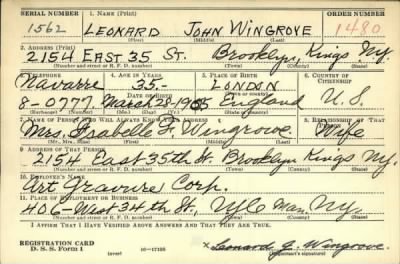 SERIAL NUMBER 1. NAME (Print) ORDER NUMBER
1562 LEONARD JOHN WINGROVE 1480
(First) (Middle) (Last)
2. ADDRESS (Print)
2154 EAST 35 ST. Brooklyn, Kings Ny.
(Number and street or R. F. D. number) (Town) (County) (State)
3. TELEPHONE 4. AGE IN YEARS 5. PLACE OF BIRTH 6. COUNTRY OF CITIZENSHIP
Navarre 35- LONDON
DATE OF BIRTH (Town or county)
8-0777 March-28-1905 England U.S.
(Exchange) (Number) (Mo.) (Day) (Yr.) (State or country)
7. NAME OF PERSON WHO WILL ALWAYS KNOW YOUR ADDRESS 8. RELATIONSHIP OF THAT PERSON
Mrs. Isabelle F. Wingrove Wife
(Mr., Mrs., Miss) (First) (Middle) (Last)
9. ADDRESS OF THAT PERSON
2154 East 35th St. Brooklyn Kings Ny.
(Number and street or R. F. D. number) (Town) (County) (State)
10. EMPLOYER'S NAME
Art Gravure Corp.
11. PLACE OF EMPLOYMENT OR BUSINESS
406-West 34th St., NYC Man. Ny.
(Number and street or R. F. D. number) (Town) (County) (State)
I AFFIRM THAT I HAVE VERIFIED ABOVE ANSWERS AND THAT THEY ARE TRUE.
REGISTRATION CARD
D. S. S. Form 1 16-17105 x Leonard J. Wingrove.
(Registrant's signature)